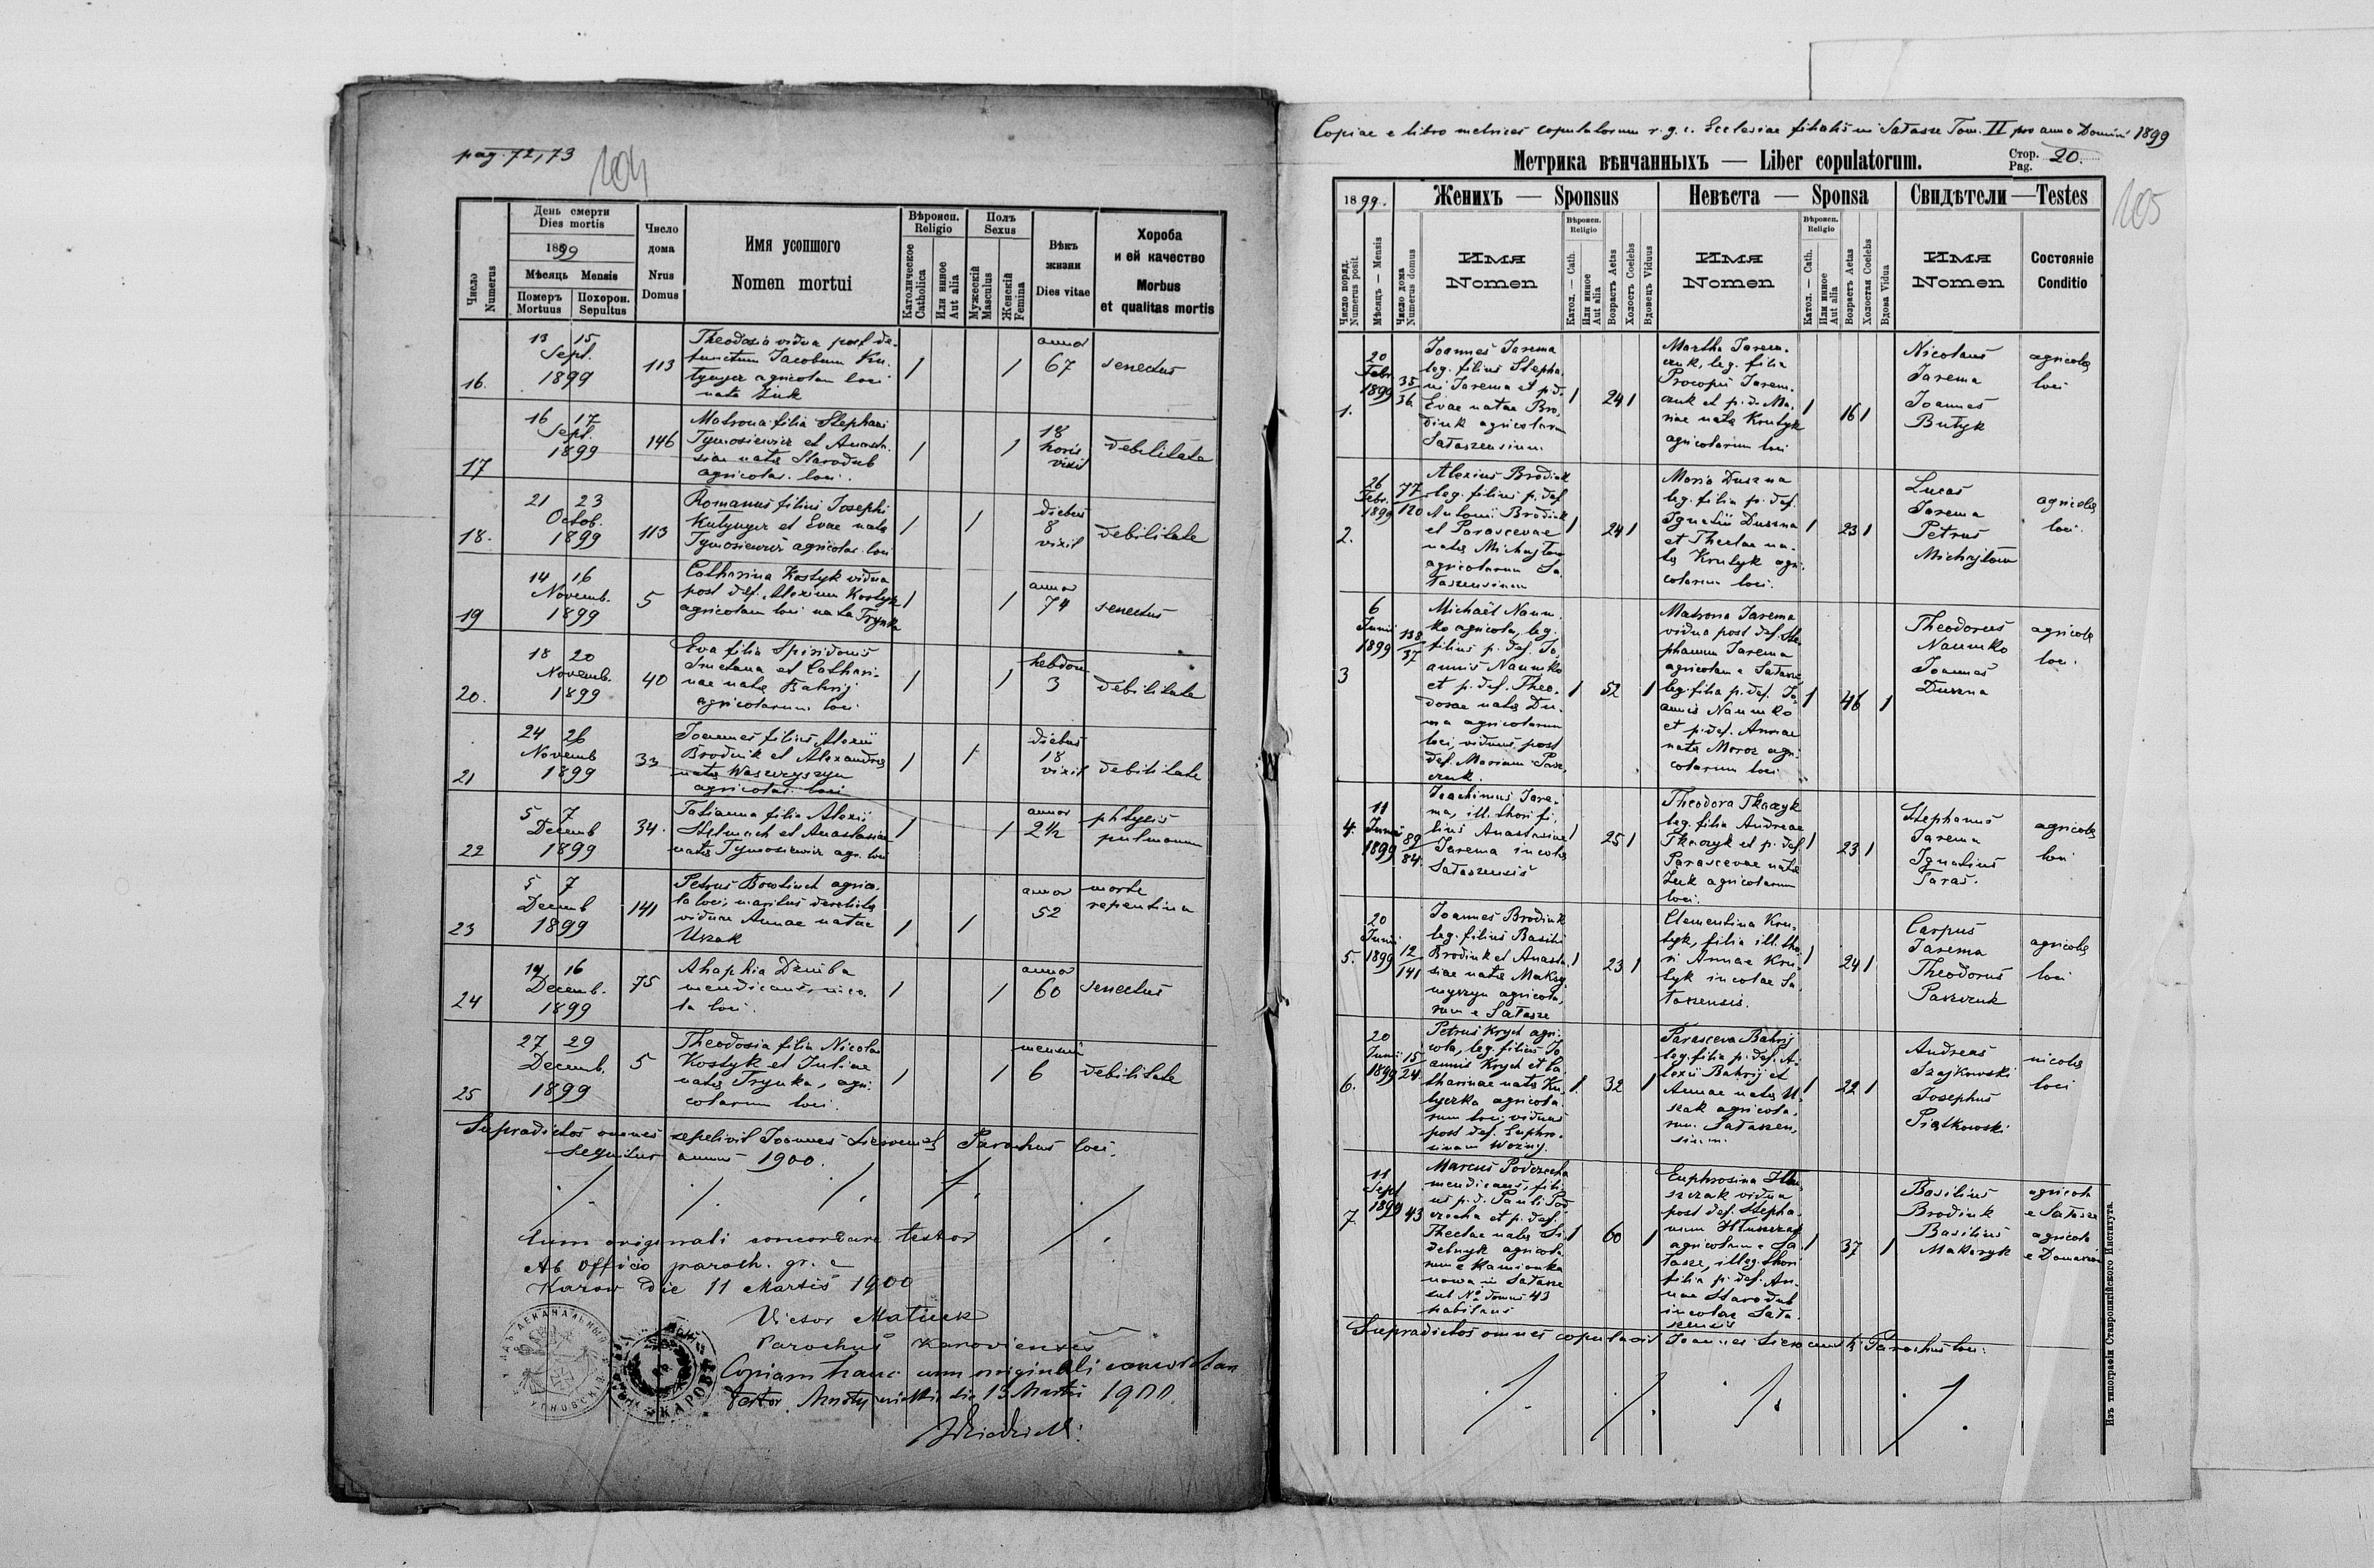 pag. 72, 73
104
Число
Numerus
День смерти
Dies mortis
1899
Мѣсяць Mensis
Померъ
Mortuus
Похорон.
Sepultus
Число
дома
Nrus
Domus
Имя усопшого
Nomen mortui
Вѣроисп.
Religio
Католическое
Catholica
Или инное
Aut alia
Полъ
Sexus
Мужескій
Masculus
Женскій
Femina
Вѣкъ
жизни
Dies vitae
Хороба
и ей качество
Morbus
et qualitas mortis
16.
13 15
Sept.
1899
113
Theodosia vidua post de-
functum Jacobum
agricolam loci
nata Żuk
1
1
annor
67
senectus
17
16 17
Sept.
1899
146
Matrona filia Stephani
Tymosiewicz et Anasta-
siae natae Starodub
agricolar. loci.
1
1
18
horis
vixit
debilitate
18.
21 23
Octob.
1899
113
Romanus filius Josephi
et Evae natae
Tymosiewicz agricolar. loci
1
1
diebus
8
vixit
debilitate
19
14 16
Novemb.
1899
5
Catharina Kostyk vidua
post def. Alexium Kostyk
agricolam loci nata Trynka
1
1
annor
74
senectus
20.
18 20
Novemb.
1899
40
Eva filia Spiridonis
Smetana et Cathari-
nae natae Bahrij
agricolarum loci
1
1
hebdom
3
debilitate
21
24 26
Novemb
1899
33
Joannes filius Alexii
Brodiuk et Alexandrae
natae Waszczyszyn
agricolar. loci
1
1
diebus
18
vixit
debilitate
22
5 7
Decemb
1899
34.
Tatianna filia Alexii
Stelmach et Anastasiae
natae Tymosiewicz agr. loci
1
1
annor
2½
phtysis
pulmonum
23
5 7
Decemb
1899
141
Petrus agrico-
la loci, maritus derelictae
viduae Annae natae
Uszak
1
1
annor
52
morte
repentina
24
14 16
Decemb.
1899
75
Ahaphia Dziuba
mendicans, inco-
la loci.
1
1
annor
60
senectus
25
27 29
Decemb.
1899
5
Theodosia filia Nicolai
Kostyk et Juliae
natae Trynka, agri-
colarum loci.
1
1
mensium
6
debilitate
Supradictos omnes sepelivit Joannes Parochus loci.
Sequitur annus 1900.
Cum originali concordare testor
Ab officio paroch. gr. c
Karow die 11 Martis 1900
Victor Matiuk
Parochus Karoviensis
Copiam hanc cum originali concordare
testor. die 15 Martii 1900.
КАРОВѢ
Copiae e libro metrices copulatorum r. g. c. Ecclesiae filialis in Sałasze Tom. II pro anno Domini 1899
Метрика вѣнчанныхъ — Liber copulatorum.
Стор.
Pag. 20.
105
1899.
Число поряд.
Numerus posit.
Мѣсяць — Mensis
Число дома
Numerus domus
Женихъ — Sponsus
Имя
Nomen
Вѣроисп.
Religio
Катол. — Cath.
Или инное
Aut alia
Возрастъ Aetas
Холостъ Coelebs
Вдовецъ Viduus
Невѣста — Sponsa
Имя
Nomen
Вѣроисп.
Religio
Катол. — Cath.
Или инное
Aut alia
Возрастъ Aetas
Холостая Coelebs
Вдова Vidua
Свидѣтели — Testes
Имя
Nomen
Состояніе
Conditio
1.
20
Febr.
1899
35
36
Joannes Jarema
leg. filius Stepha-
ni Jarema et p. d.
Evae natae Bro-
diuk agricolarum
Sałaszensium
1
24 1
Martha Jarem-
czuk, leg. filia
Procopii Jarem-
czuk et p. d. Ma-
riae natae Krutyk
agricolarum loci
1
16 1
Nicolaus
Jarema
Joannes
Butyk
agricolae
loci
2.
26
Febr.
1899
77
120
Alexius Brodiuk
leg. filius p. def.
Antonii Brodiuk
et Parascevae
natae Michajłow
agricolarum Sa-
łaszensium
1
24 1
Maria Duszna
leg. filia p. def.
Ignatii Duszna
et Theclae na-
tae Krutyk agri-
colarum loci.
1
23 1
Lucas
Jarema
Petrus
Michajłow
agricolae
loci.
3
6
Junii
1899
138
87
Michaël Naum-
ko agricola, leg.
filius p. def. Jo-
annis Naumko
et p. def. Theo-
dosae natae Du-
ma agricolarum
loci, viduus post
def. Mariam Pasz-
czuk.
1
52
1
Matrona Jarema
vidua post def. Ste-
phanum Jarema
agricolam e Sałasze,
leg. filia p. def. Jo-
annis Naumko
et p. def. Annae
natae Moroz agri-
colarum loci
1
46
1
Theodorus
Naumko
Joannes
Duszna
agricolae
loci.
4.
11
Junii
1899
89
84.
Joachimus Jare-
ma, ill. thori fi-
lius Anastasiae
Jarema incolae
Sałaszensis
1
25 1
Theodora Tkaczyk
leg. filia Andreae
Tkaczyk et p. def.
Parascevae natae
Żuk agricolarum
loci.
1
23 1
Stephanus
Jarema
Ignatius
Taras.
agricolae
loci
5.
20
Junii
1899
12
141
Joannes Brodiuk
leg. filius Basilii
Brodiuk et Anasta-
siae natae Maksy-
myszyn agricola-
rum e Sałasze
1
23 1
Clementina Kru-
tyk, filia ill. tho-
ri Annae Kru-
tyk incolae Sa-
łaszensis.
1
24 1
Carpus
Jarema
Theodorus
Paszczuk
agricolae
loci
6.
20
Junii
1899
15
24
Petrus Krych agri-
cola, leg. filius Jo-
annis Krych et Ca-
tharinae natae Ku-
tyczka agricola-
rum loci, viduus
post def. Euphro-
sinam Woźny.
1
32
1
Parasceva Bahrij
leg. filia p. def. A-
lexii Bahrij et
Annae natae U-
szak agricola-
rum Sałaszen-
sium.
1
22 1
Andreas
Szajkowski
Josephus
Piątkowski
incolae
loci
7.
11
Sept
1899
43
Marcus Podczecha
mendicans, fili-
us p. d. Pauli Pod-
czecha et p. def.
Theclae natae Si-
delnyk agricola-
rum e Kamionka
nowa in Sałasze
sub No domus 43
habitans
1
60
1
Euphrosina Hłu-
szczak vidua
post def. Stepha-
num Hłuszczak
agricolam e Sa-
łasze, illeg. thori
filia p. def. An-
nae Starodub
incolae Sała-
szensis
1
37
1
Basilius
Brodiuk
Basilius
Makaryk
agricola
e Sałasze
agricola
e Domaszów
Supradictos omnes copulavit Joannes Parochus loci.
Изъ типографіи Ставропигійского Института.